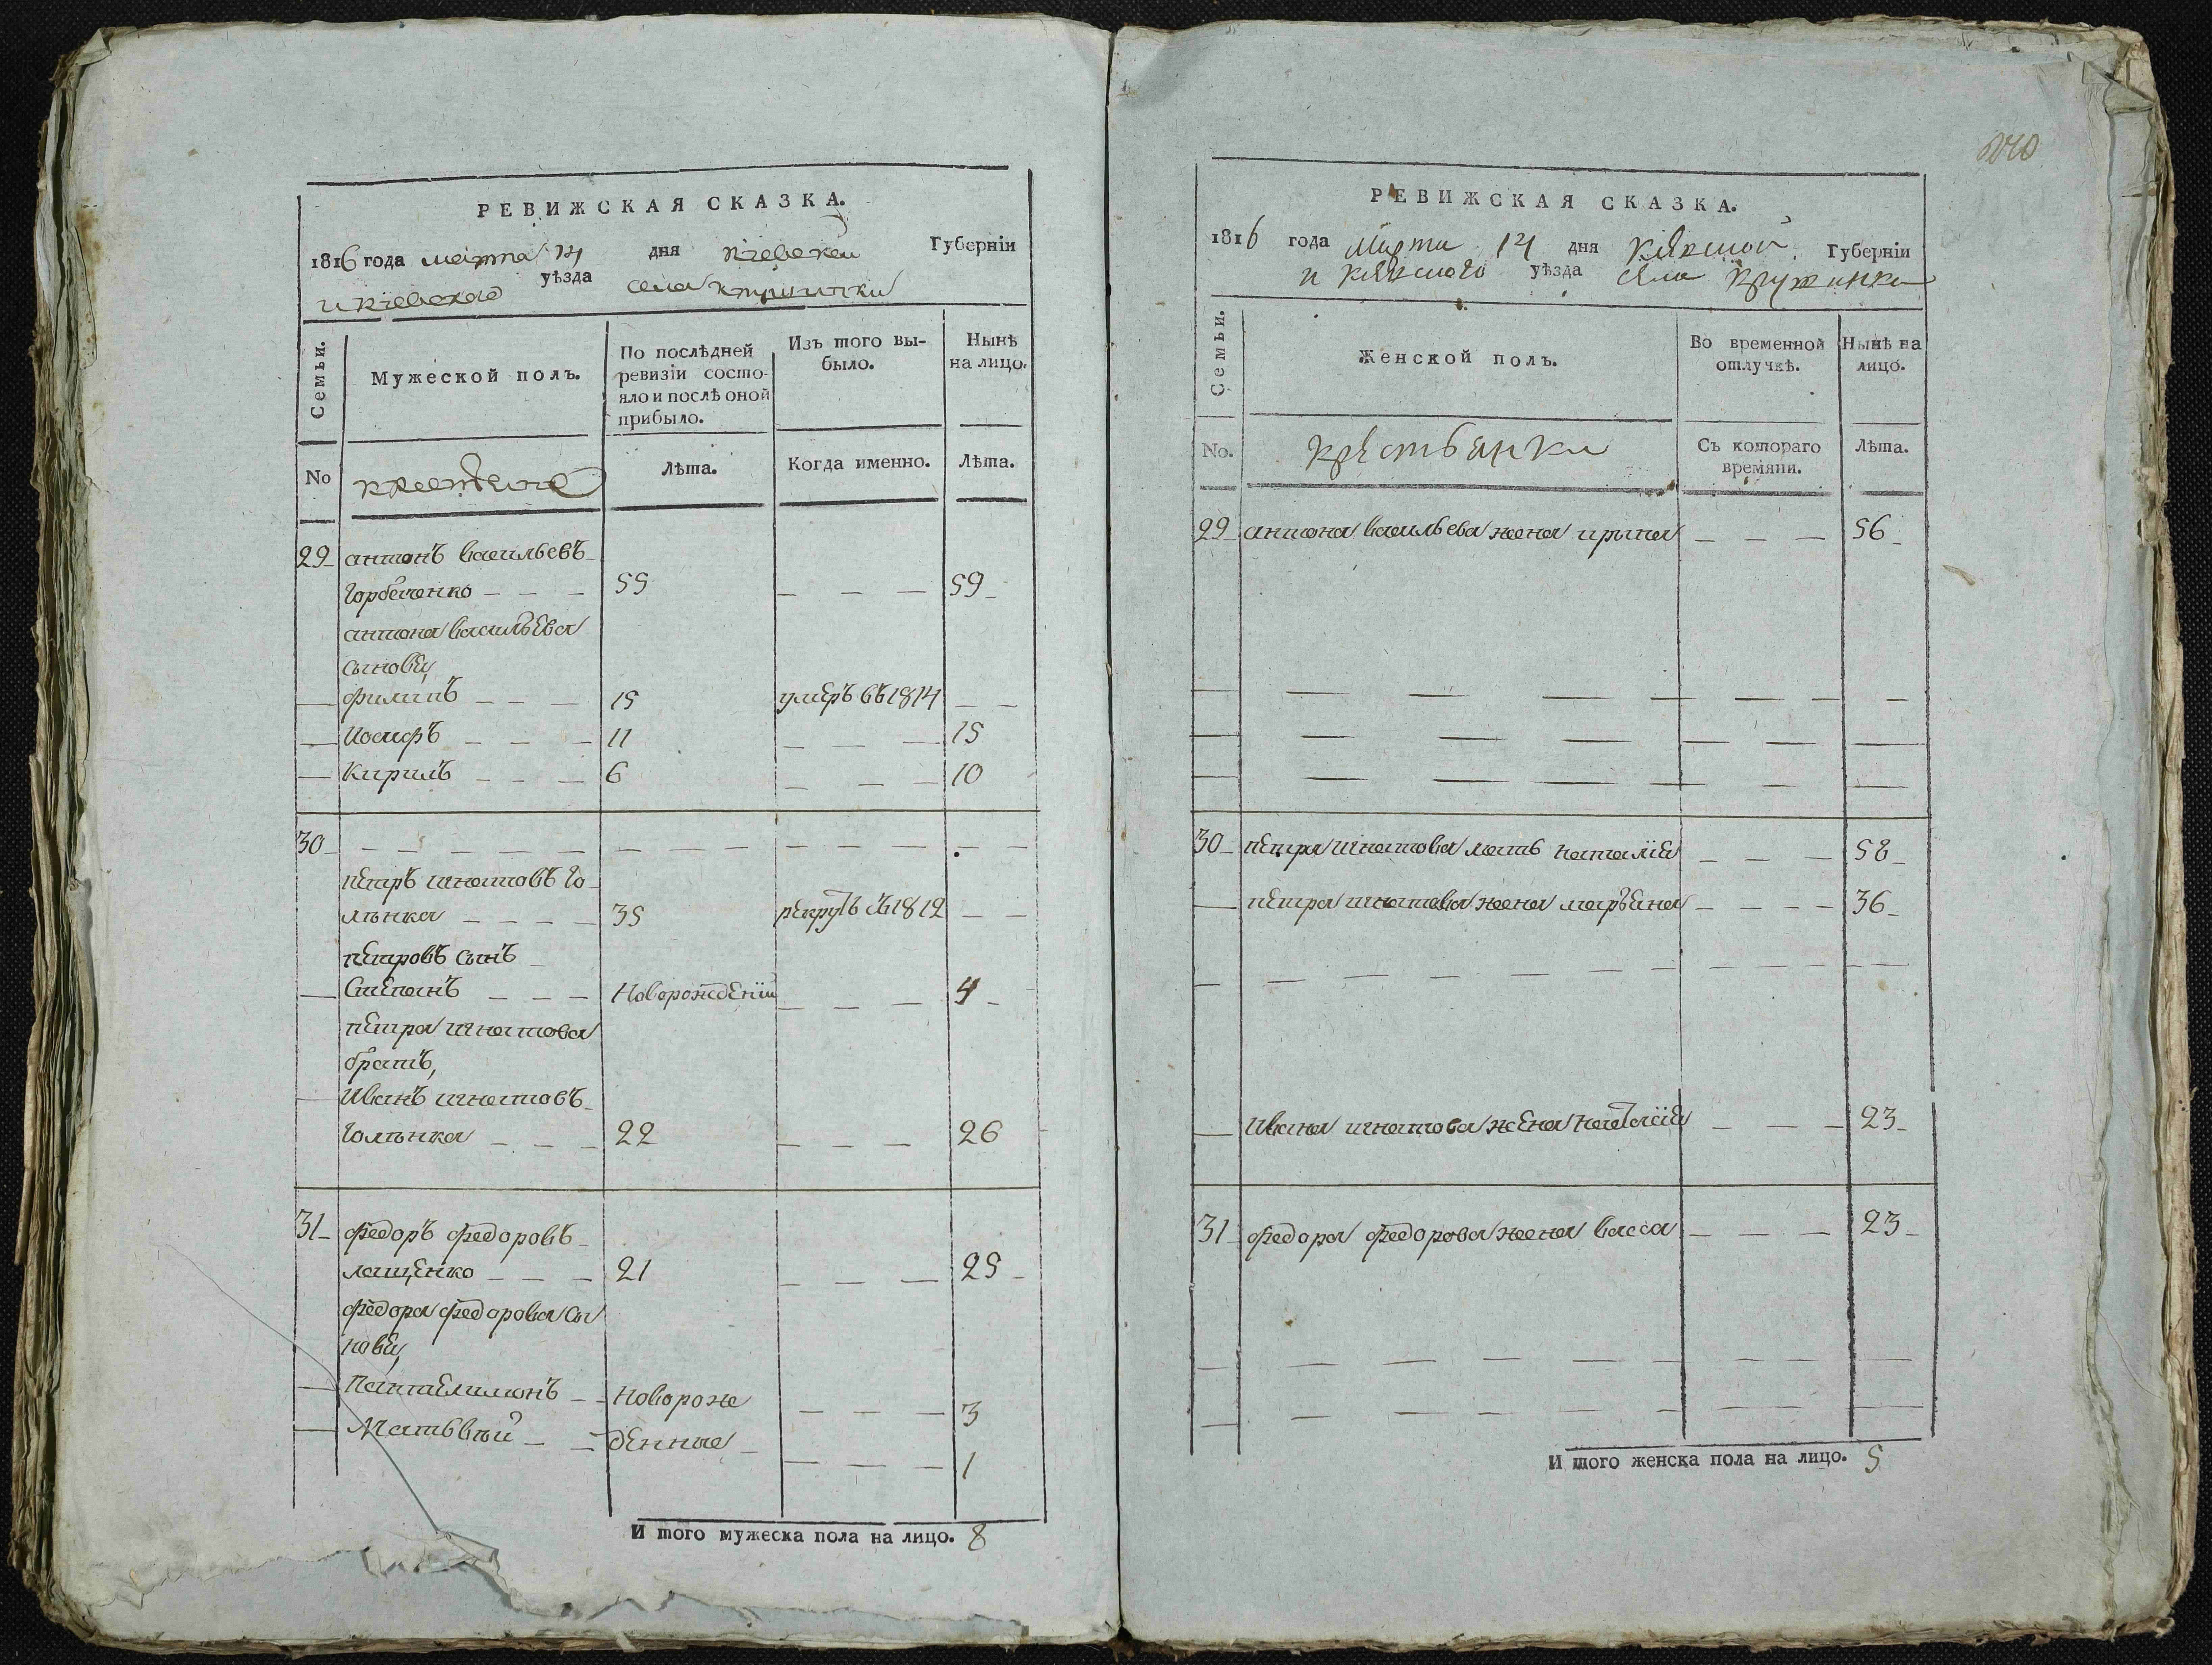 РЕВИЖСКАЯ СКАЗКА.
1816 года марта 14 дня Кіевской Губерніи
и Кіевского уѣзда села Кружики
Семьи.
Мужеской полъ.
По послѣдней ревизіи состо-
яло и послѣ оной
прибыло.
Изъ того вы-
было.
Нынѣ
на лицо.
No
крестьяне
Лѣта.
Когда именно.
Лѣта.
29 антонъ васильевъ
горбаченко — — — 55 — — — 59
антона васильева
сыновья,
филипъ — — — 15 умеръ въ 1814 — —
Иосифъ — — — 11 — — — 15
Кирилъ — — — 6 — — — 10
30 — — — — — —
петръ игнатовъ го-
лянка — — — — 35 рекрутъ въ 1812 — —
петровъ сынъ
Степанъ — — — Новорожденій — — — 4
петра игнатова
братъ,
Иванъ игнатовъ
Голянка — — — 22 — — — 26
31 федоръ федоровъ
лащенко — — — 21 — — — 25
федора федорова сы
новья,
Пантелимонъ — — новорож — — — 3
Матьвѣй — — денные — — — 1
И того мужеска пола на лицо. 8
240
РЕВИЖСКАЯ СКАЗКА.
1816 года Марта 14 дня Кіевской Губерніи
и Кіевского уѣзда села Кружики
Семьи.
Женской полъ.
Во временной
отлучкѣ.
Нынѣ на
лицо.
No.
Крестьянки
Съ котораго
времяни.
Лѣта.
29 антона васильева жена ирина — — — 56
30 петра игнатова мать наталія — — — 58
петра игнатова жена марьяна — — — — 36
Ивана игнатова жена наталія — — — 23
31 федора федорова жена васса — — — 23
И того женска пола на лицо. 5